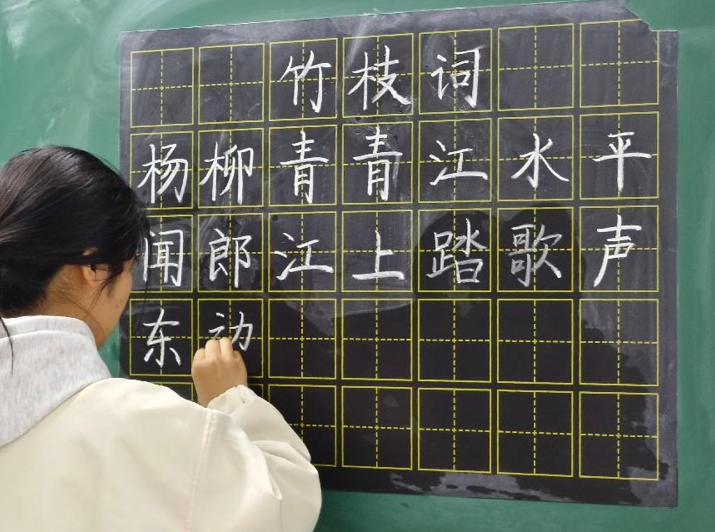 竹枝词
杨柳青青江水平
闻郎江上踏歌声
东